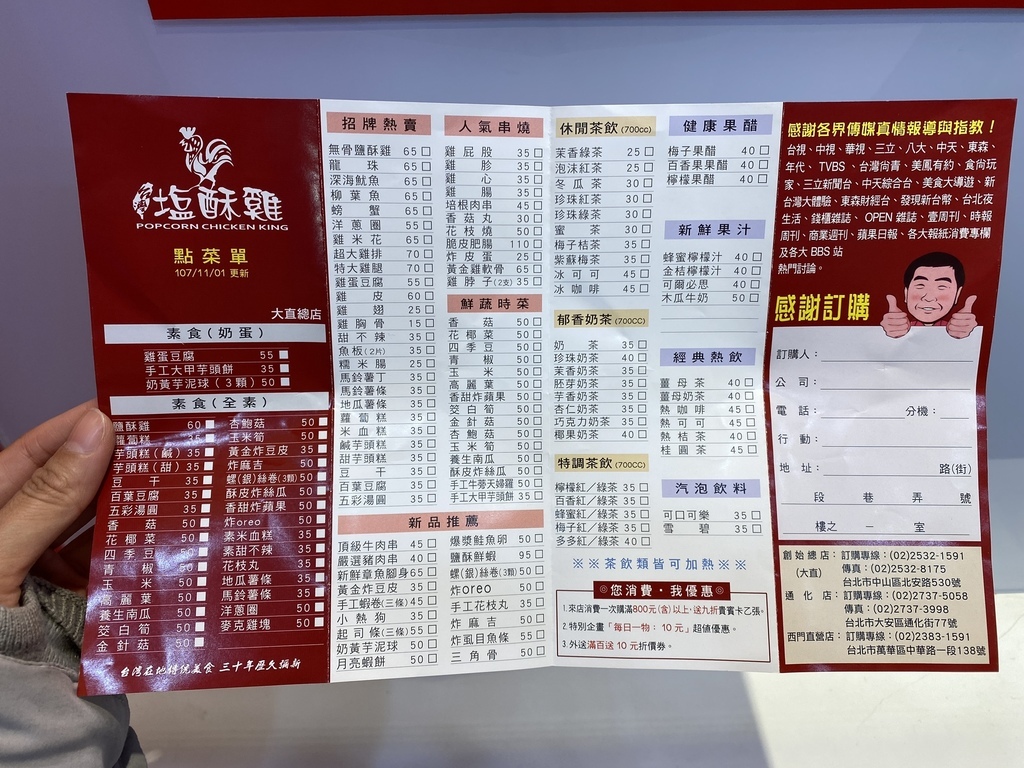 塩酥雞
POPCORN CHICKEN KING
點菜單
107/11/01 更新
大直總店
素食(奶蛋)
雞蛋豆腐 55
手工大甲芋頭餅 35
奶黃芋泥球(3顆) 50
素食(全素)
鹽酥雞 60
蘿蔔糕 35
芋頭糕(鹹) 35
芋頭糕(甜) 35
豆干 35
百葉豆腐 35
五彩湯圓 35
香菇 50
花椰菜 50
四季豆 50
青椒 50
玉米 50
高麗葉 50
養生南瓜 50
筊白筍 50
金針菇 50
杏鮑菇 50
玉米筍 50
黃金炸豆皮 35
炸麻吉 50
螺(銀)絲卷(3顆) 50
酥皮炸絲瓜 50
香甜炸蘋果 50
炸oreo 50
素米血糕 35
素甜不辣 35
花枝丸 35
地瓜薯條 35
馬鈴薯條 35
洋蔥圈 50
麥克雞塊 50
台灣在地傳統美食 三十年歷久彌新
招牌熱賣
無骨鹽酥雞 65
龍珠 65
深海魷魚 65
柳葉魚 65
螃蟹 65
洋蔥圈 55
雞米花 65
超大雞排 70
特大雞腿 70
雞蛋豆腐 55
雞皮 60
雞翅 25
雞胸骨 15
甜不辣 35
魚板(2片) 35
糯米腸 25
馬鈴薯丁 35
馬鈴薯條 35
地瓜薯條 35
蘿蔔糕 35
米血糕 35
鹹芋頭糕 35
甜芋頭糕 35
豆干 35
百葉豆腐 35
五彩湯圓 35
人氣串燒
雞屁股 35
雞胗 35
雞心 35
雞腸 35
培根肉串 45
香菇丸 30
花枝燒 50
脆皮肥腸 110
炸皮蛋 25
黃金雞軟骨 65
雞脖子(2支) 35
鮮蔬時菜
香菇 50
花椰菜 50
四季豆 50
青椒 50
玉米 50
高麗葉 50
香甜炸蘋果 50
筊白筍 50
金針菇 50
杏鮑菇 50
玉米筍 50
養生南瓜 50
酥皮炸絲瓜 50
手工牛蒡天婦羅 50
手工大甲芋頭餅 35
新品推薦
頂級牛肉串 45
嚴選豬肉串 40
新鮮章魚腳身 65
黃金炸豆皮 35
手工蝦卷(三條) 45
小熱狗 35
起司條(三條) 55
奶黃芋泥球 50
月亮蝦餅 50
爆漿鮭魚卵 50
鹽酥鮮蝦 95
螺(銀)絲卷(3顆) 50
炸oreo 50
手工花枝丸 35
炸麻吉 50
炸虱目魚條 55
三角骨 50
休閒茶飲(700cc)
茉香綠茶 25
泡沫紅茶 25
冬瓜茶 30
珍珠紅茶 30
珍珠綠茶 30
蜜茶 30
梅子桔茶 35
紫蘇梅茶 35
冰可可 45
冰咖啡 45
郁香奶茶(700CC)
奶茶 35
珍珠奶茶 40
茉香奶茶 35
胚芽奶茶 35
芋香奶茶 35
杏仁奶茶 35
巧克力奶茶 35
椰果奶茶 40
特調茶飲(700cc)
檸檬紅/綠茶 35
百香紅/綠茶 35
蜂蜜紅/綠茶 35
梅子紅/綠茶 35
多多紅/綠茶 40
健康果醋
梅子果醋 40
百香果果醋 40
檸檬果醋 40
新鮮果汁
蜂蜜檸檬汁 40
金桔檸檬汁 40
可爾必思 40
木瓜牛奶 50
經典熱飲
薑母茶 40
薑母奶茶 40
熱咖啡 45
熱可可 45
熱桔茶 40
桂圓茶 45
汽泡飲料
可口可樂 35
雪碧 35
※※茶飲類皆可加熱※※
◎您消費‧我優惠◎
1.來店消費一次購滿800元(含)以上,送九折貴賓卡乙張。
2.特別企畫「每日一物:10元」超值優惠。
3.外送滿百送10元折價券。
感謝各界傳媒真情報導與指教!
台視、中視、華視、三立、八大、中天、東森、
年代、TVBS、台灣尚青、美鳳有約、食尚玩
家、三立新聞台、中天綜合台、美食大導遊、新
台灣大體驗、東森財經台、發現新台幣、台北夜
生活、錢櫃雜誌、OPEN 雜誌、壹周刊、時報
周刊、商業週刊、蘋果日報、各大報紙消費專欄
及各大 BBS 站
熱門討論。
感謝訂購
訂購人:
公司:
電話: 分機:
行動:
地址: 路(街)
段 巷 弄 號
樓之 — 室
創始總店:訂購專線:(02)2532-1591
(大直) 傳真:(02)2532-8175
台北市中山區北安路530號
通化店:訂購專線:(02)2737-5058
傳真:(02)2737-3998
台北市大安區通化街77號
西門直營店:訂購專線:(02)2383-1591
台北市萬華區中華路一段138號